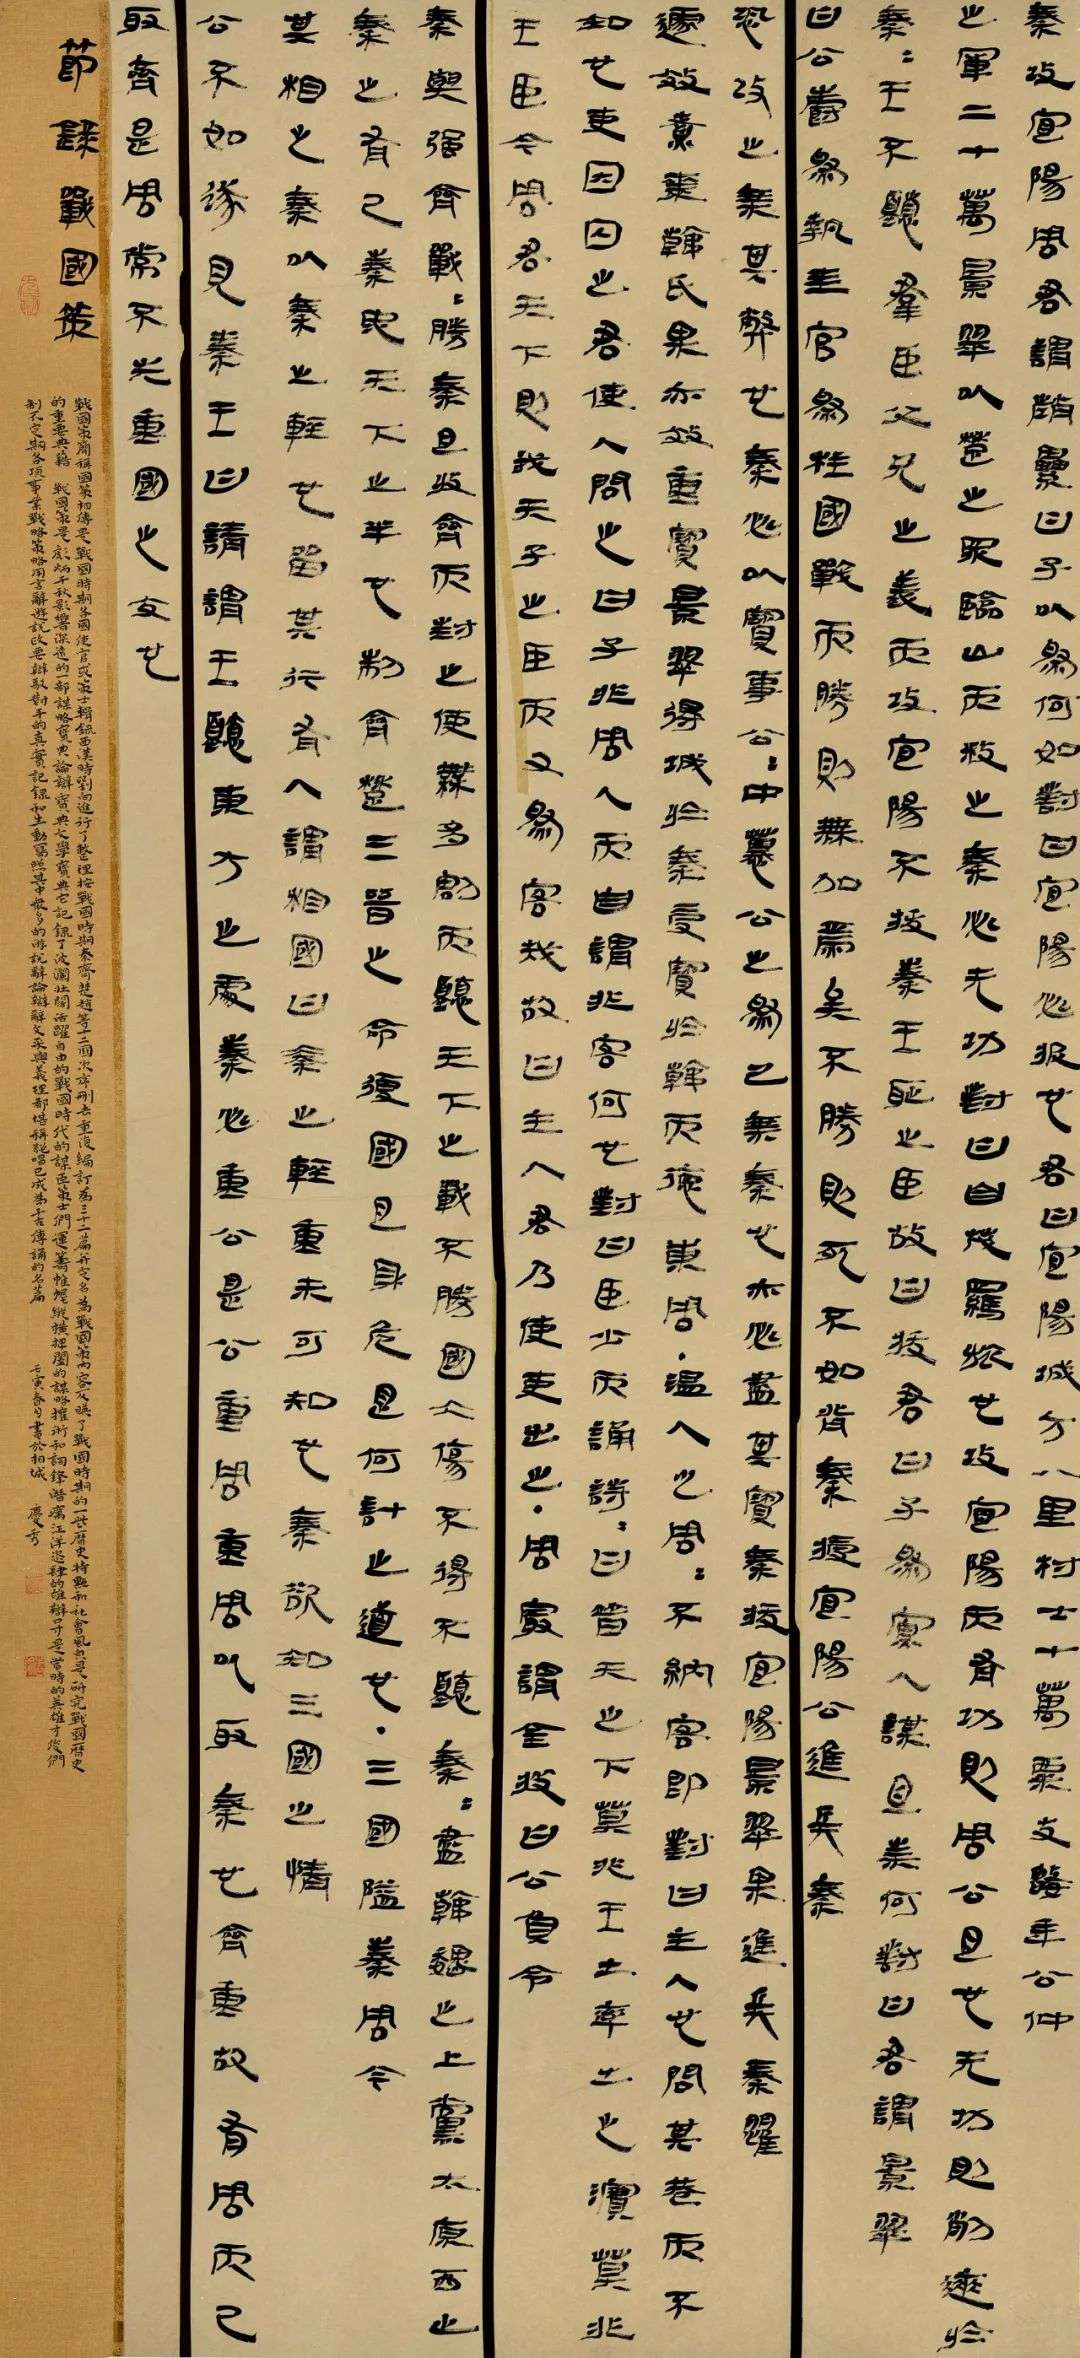 秦攻宜陽周君謂趙累曰子以為何如對曰宜陽必拔也君曰宜陽城方八里材士十萬粟支數年公仲
之軍二十萬景翠以楚之眾臨山而救之秦必无功對曰甘茂羈旅也攻宜陽而有功則周公旦也无功則削迹於
秦：王不聽羣臣父兄之義而攻宜陽不拔秦王恥之臣故曰拔君曰子為寡人謀且奈何對曰君謂景翠
曰公爵為執圭官為柱國戰而勝則無加焉矣不勝則死不如背秦援宜陽公進兵秦
恐攻之乘其弊也秦必以寶事公：中慕公之為己乘秦也亦必盡其寶秦拔宜陽景翠果進兵秦懼
遽效煮棗韓氏果亦效重寶景翠得城於秦受寶於韓而德東周·温人之周：不納客即對曰主人也問其巷而不
知也吏因囚之君使人問之曰子非周人而自謂非客何也對曰臣少而誦詩：曰普天之下莫非王土率土之濱莫非
王臣今周君天下則我天子之臣而又為客哉故曰主人君乃使吏出之·周最謂金投曰公負令
秦與强齊戰：勝秦且收齊而封之使無多割而聽天下之戰不勝國大傷不得不聽秦：盡韓魏之上黨太原西止
秦之有已秦地天下之半也制齊楚三晉之命復國且身危是何計之道也·三國隘秦周令
其相之秦以秦之輕也留其行有人謂相國曰秦之輕重未可知也秦欲知三國之情
公不如遂見秦王曰請謂王聽東方之處秦必重公是公重周重周以取秦也齊重故有周而已
取齊是周常不失重國之交也
節錄戰國策
戰國策簡稱國策初傳是戰國時期各國使官或策士輯錄西漢時劉向進行了整理按戰國時期秦齊楚趙等十二國次序刪去重復編訂為三十三篇并定名為戰國策內容反映了戰國時期的一些歷史特點和社會風貌是研究戰國歷史
的重要典籍 戰國策是彪炳千秋影響深遠的一部謀略寶典論辯寶典文學寶典它記錄了波瀾壯闊活躍自由的戰國時代的謀臣策士們運籌帷幄縱橫捭闔的謀略權術和詞鋒潛藏汪洋恣肆的雄辯口才是當時的英雄才俊們
制不定期各項事業戰略策略用言辭遊說政要辯駁對手的真實記錄和生動寫照其中衆多的游說辭論辯辭文采與義理都堪稱絕唱已成為千古傳誦的名篇 壬寅春月書於相城 慶秀